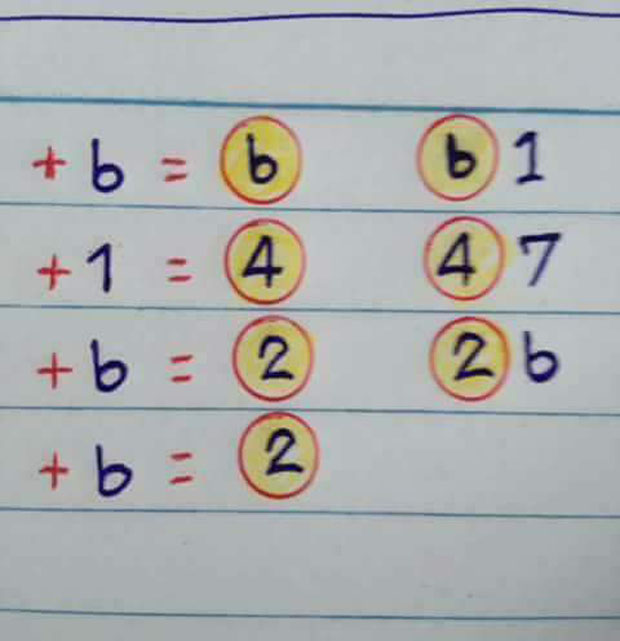 + b = b b 1
+ 1 = 4 4 7
+ b = 2 2 b
+ b = 2